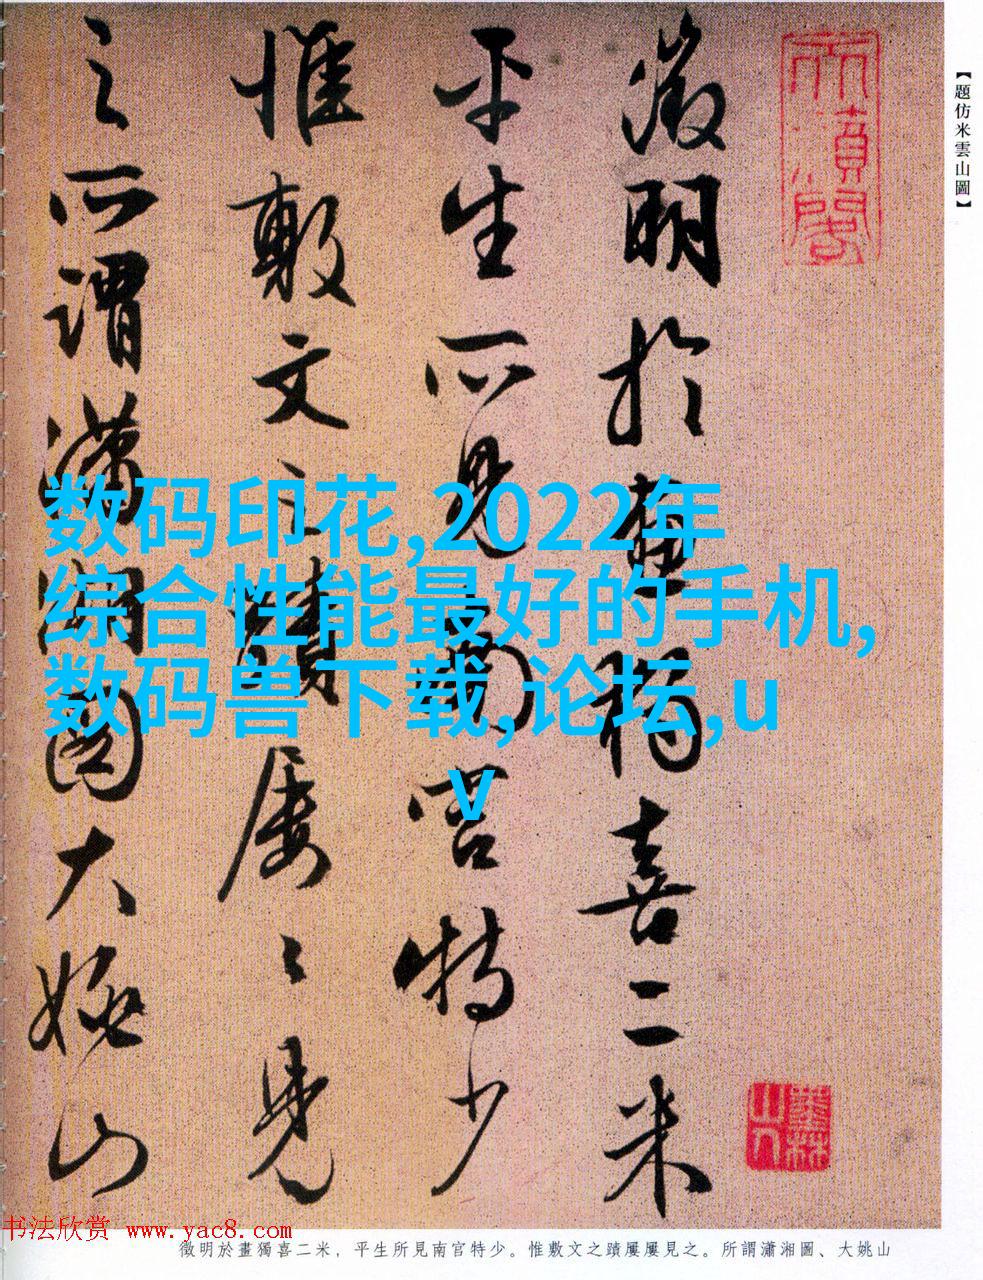 【題仿米雲山圖】
徵明於畫獨喜二米
平生所見南宫特少
惟敷文之蹟屢〻見
之所謂瀟湘圖大姚山
數碼印花,2022年
综合性能最好的手机,
数码兽下载,论坛,u
v
书法欣赏 www.yac8.com
徵明於畫獨喜二米，平生所見南官特少。惟敷文之蹟屢屢見之。所謂瀟湘圖、大姚山